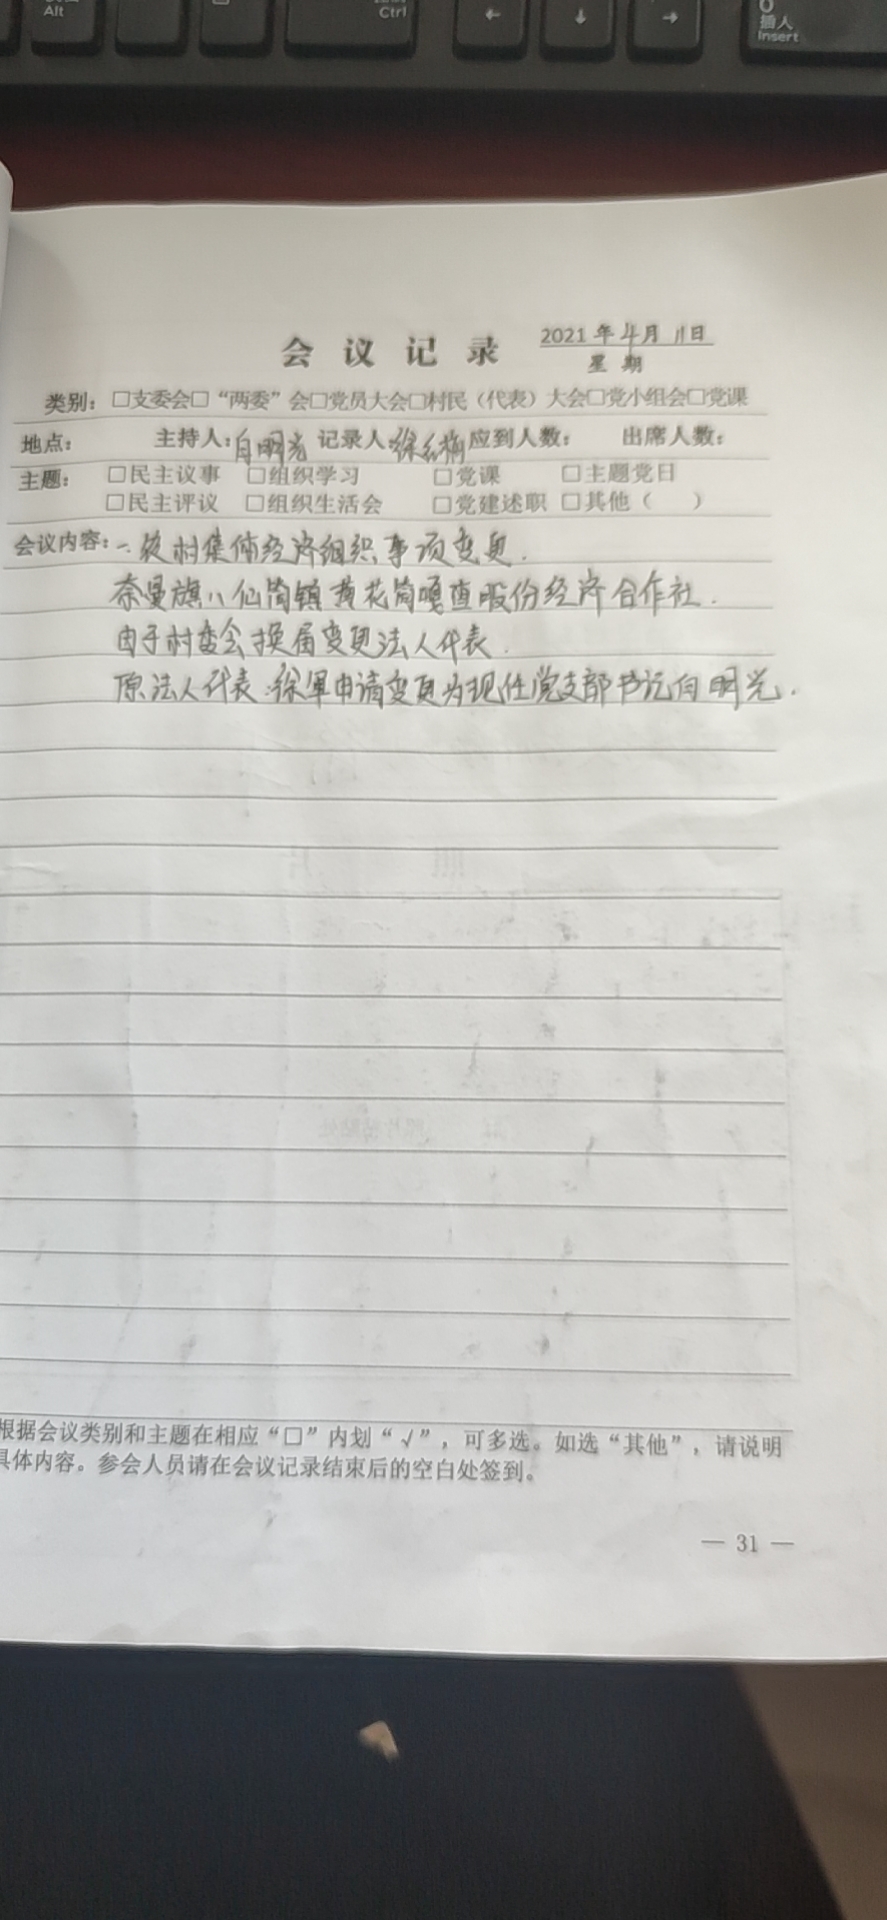 Alt
Ctrl
0
插入
Insert
会议记录
2021年4月11日
星期
类别：□支委会□“两委”会□党员大会□村民（代表）大会□党小组会□党课
地点： 主持人：白明光 记录人 徐红梅 应到人数： 出席人数：
主题：□民主议事 □组织学习 □党课 □主题党日
□民主评议 □组织生活会 □党建述职 □其他（ ）
会议内容：一.农村集体经济组织事项变更.
奈曼旗八仙筒镇黄花筒嘎查股份经济合作社.
由于村委会换届变更法人代表.
原法人代表:徐军申请变更为现任党支部书记白明光.
根据会议类别和主题在相应“□”内划“√”，可多选。如选“其他”，请说明
具体内容。参会人员请在会议记录结束后的空白处签到。
— 31 —